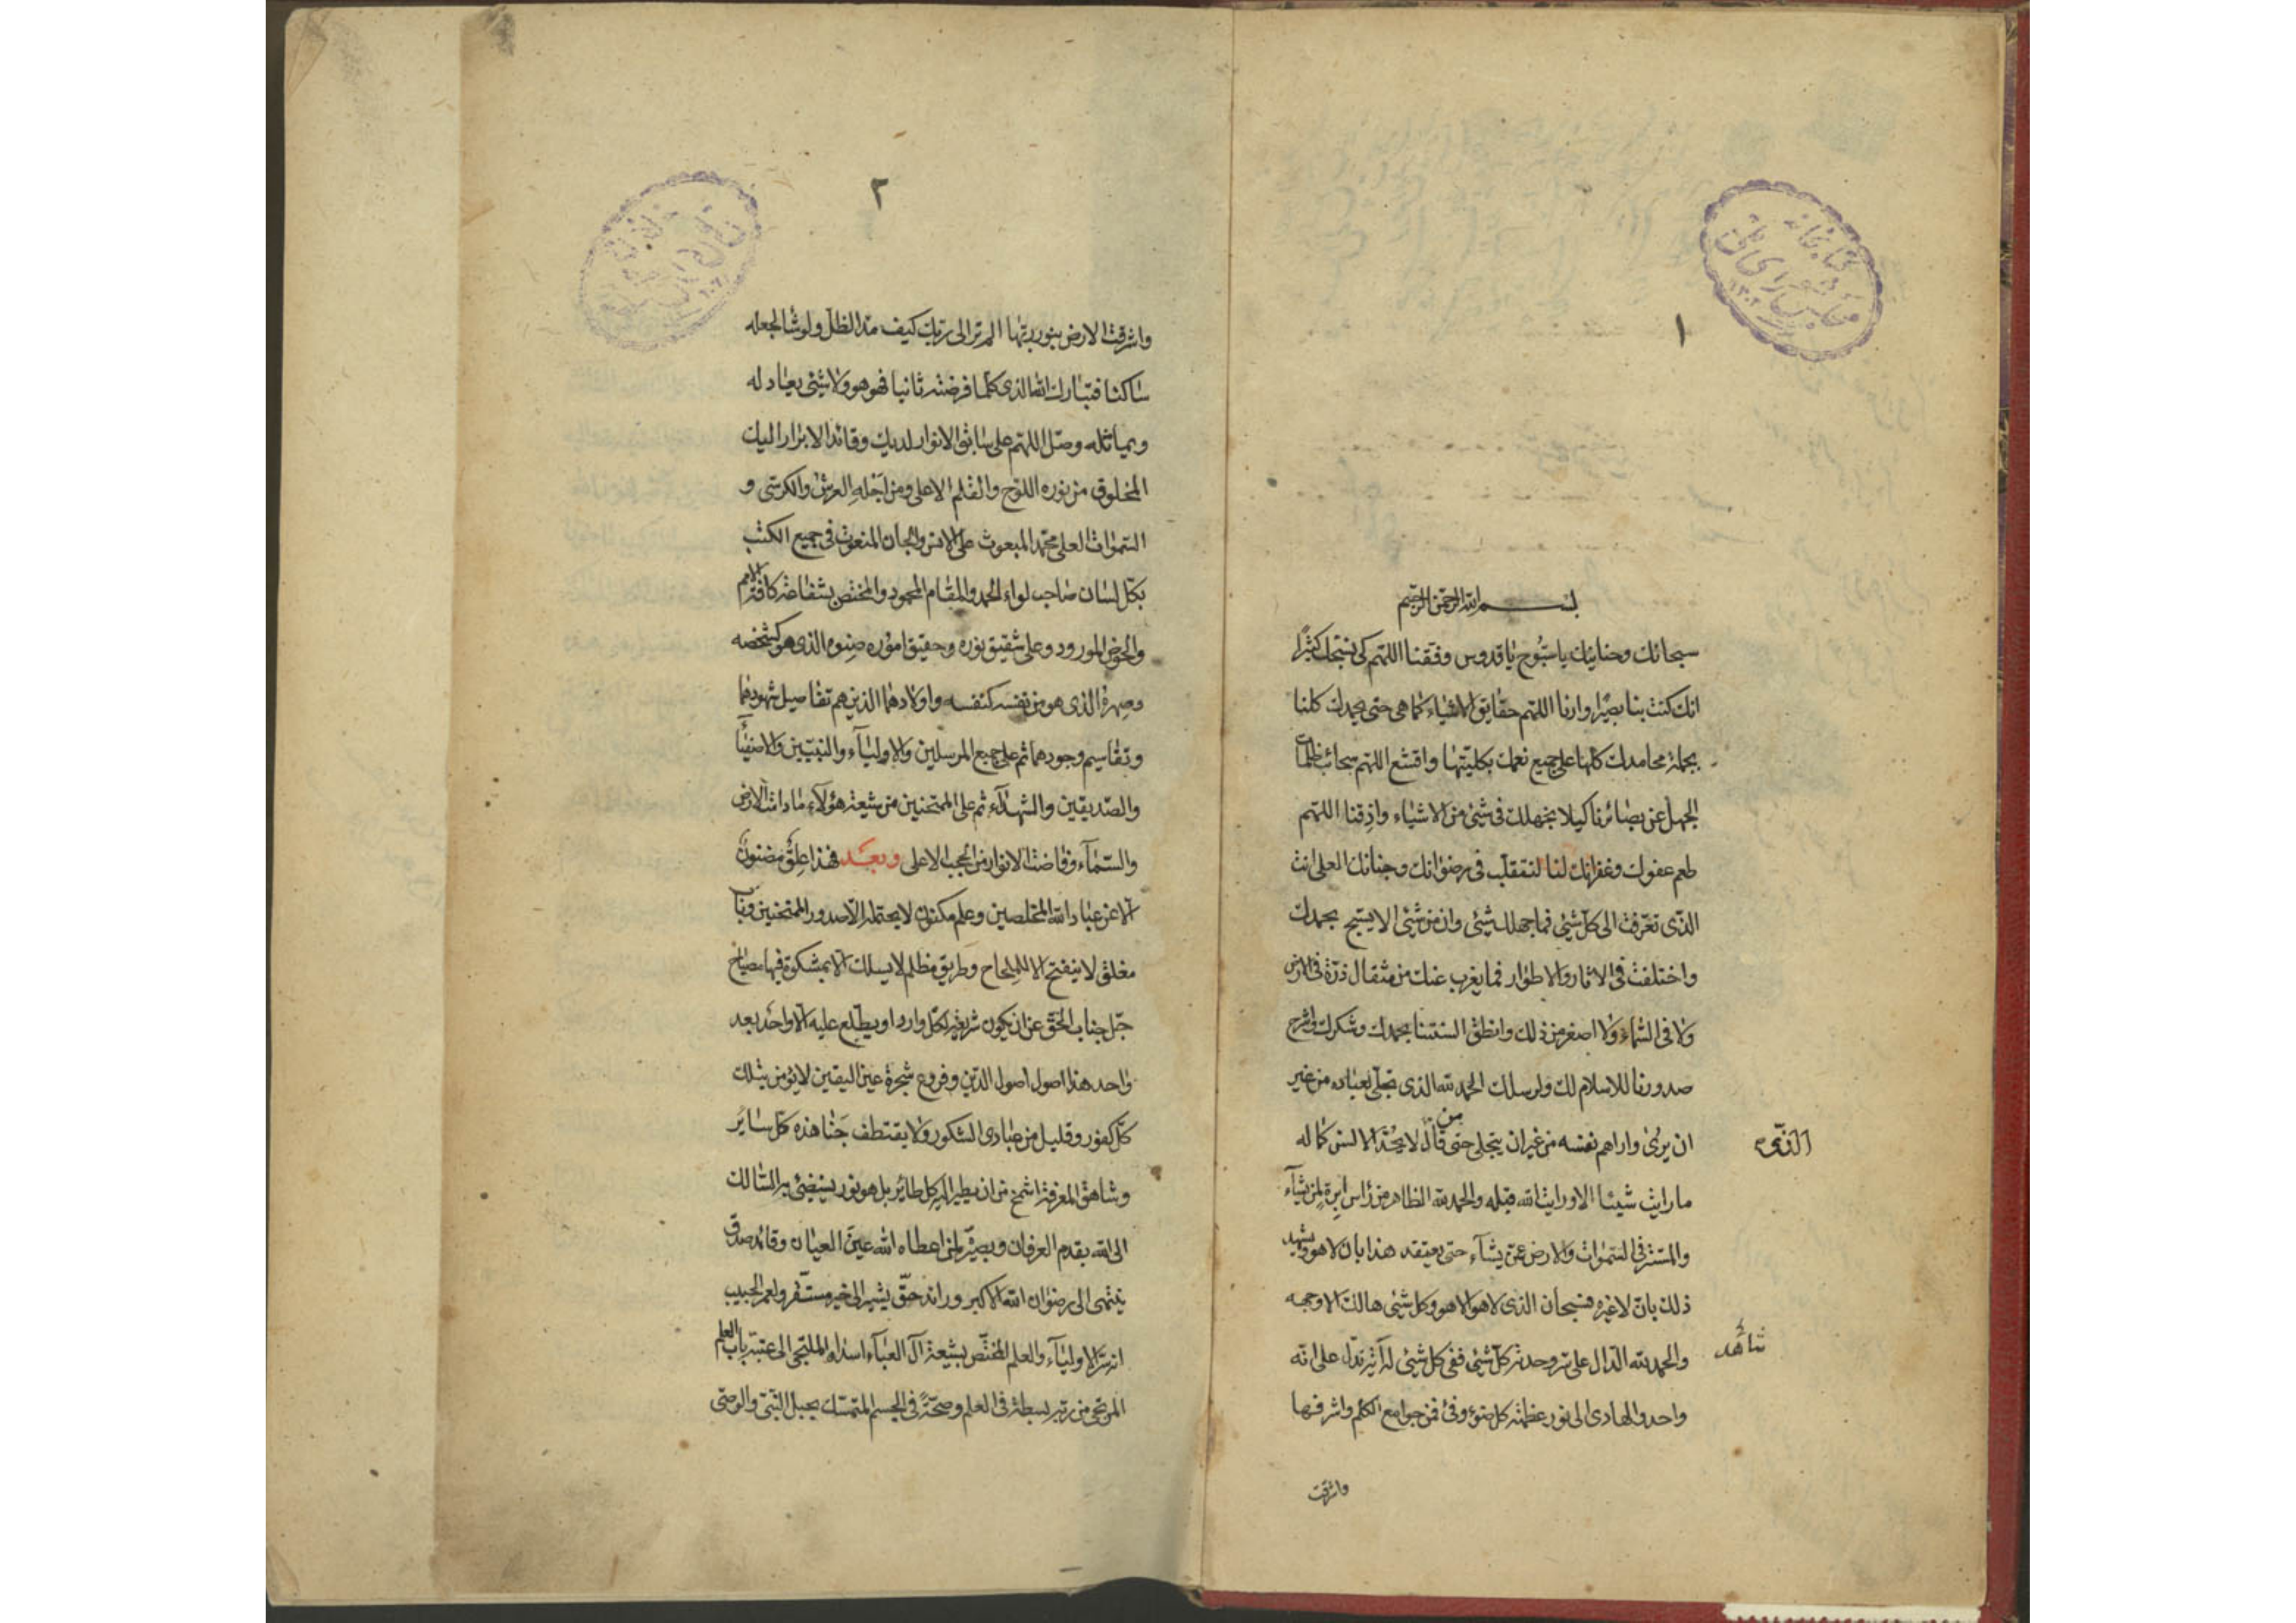 كتابخانه
مجلس شورای ملی
١
بسم الله الرحمن الرحيم
سبحانك وحنانيك ياسبوح ياقدوس وفقنا اللهم كى نسبحك كثيرًا
انك كنت بنا بصيرا وارنا اللهم حقايق الاشياء كما هى حتى نحمدك كلنا
بجملة محامدك كلها على جميع نعمك بكليتها واقشع اللهم سحائب ظلمات
الجهل عن بصائرنا كيلا نجهلك فى شئ من الاشياء واذقنا اللهم
طعم عفوك وغفرانك لنا لنتقلب فى رضوانك وجنانك العلى انت
الذى تعرفت الى كل شئ فما جهلك شئ وان من شئ الا يسبح بحمدك
واختلفت فى الاثار والاطوار فما يعزب عنك من مثقال ذرة فى الارض
ولا فى السماء ولا اصغر من ذلك وانطق السنتنا بحمدك وشكرك واشرح
صدورنا للاسلام لك ولرسلك الحمد لله الذى تجلى لعباده من غير
ان يرى واراهم نفسه من غير ان يتجلى حتى قال من لا يحد الالسن كماله
الذى
ما رايت شيئا الا ورايت الله قبله والحمد لله الظاهر من راس ابرة لمن يشآء
والمستتر فى السموات والارض عمن يشآء حتى يعتقد هذا بان لا هو ويشهد
ذلك بان لا غيره فسبحان الذى لا هو الا هو وكل شئ هالك الا وجهه
والحمد لله الدال على سر وحدته كل شئ ففى كل شئ له آية تدل على انه
شاهد
واحد والهادى الى نور عظمته كل ضوء وفئ فمن جوامع الكلم واشرفها
واشرقت
٢
واشرقت الارض بنور ربها الم تر الى ربك كيف مد الظل ولو شا لجعله
ساكنا فتبارك الله الذى كلما فرضته ثانيا فهو هو ولا شئ يعادله
ويماثله وصل اللهم على سابق الانوار لديك وقائد الابرار اليك
المخلوق من نوره اللوح والقلم الاعلى ومن اجله العرش والكرسى و
السموات العلى محمد المبعوث على الانس والجان المنعوت فى جميع الكتب
بكل لسان صاحب لواء الحمد والمقام المحمود والمختص بشفاعة كافة الامم
والحوض المورود وعلى شقيق نوره وحقيق اموره صنوه الذى هو كشخصه
وصهره الذى هو من نفسه كنفسه واولادهما الذين هم تفاصيل شهودهما
وتقاسيم وجودهما ثم على جميع المرسلين والاوليآء والنبيين والاصفيآ
والصديقين والشهدآء ثم على الممتحنين من شيعة هؤلآء ما دامت الارض
والسمآء وفاضت الانوار من الحجب الاعلى وبعد فهذا علق مضنون
الا عن عباد الله المخلصين وعلم مكنون لا يحتمله الا صدور الممتحنين وباب
مغلق لا ينفتح الا للملحاح وطريق مظلم لا يسلك الا بمشكوة فيها مصباح
جل جناب الحق عن ان يكون شريعة لكل وارد او يطلع عليه الا واحد بعد
واحد هذا اصول اصول الدين وفروع شجرة عين اليقين لا يؤمن بتلك
كل كفور وقليل من عبادى الشكور ولا يقتطف جنا هذه كل سائر
وشاهق المعرفة اشمخ من ان يطير اليه كل طائر بل هو نور يستضئ به السالك
الى الله بقدم العرفان وبصر لمن اعطاه الله عين العيان وقائد صدق
ينتهى الى رضوان الله الاكبر ورائد حق يشير الى خير مستقر ولعمر الحبيب
انه سر الاوليآء والعلم المختص بشيعة آل العبآء اسداه الملتجى الى عتبة باب العلم
المرتجى من ربه بسطة فى العلم وصحة فى الجسم المتمسك بحبل النبى والوصى